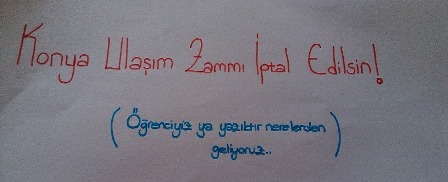 Konya Ulaşım Zammı İptal Edilsin!
(Öğrenciyiz ya yazıktır nerelerden
geliyoruz..)